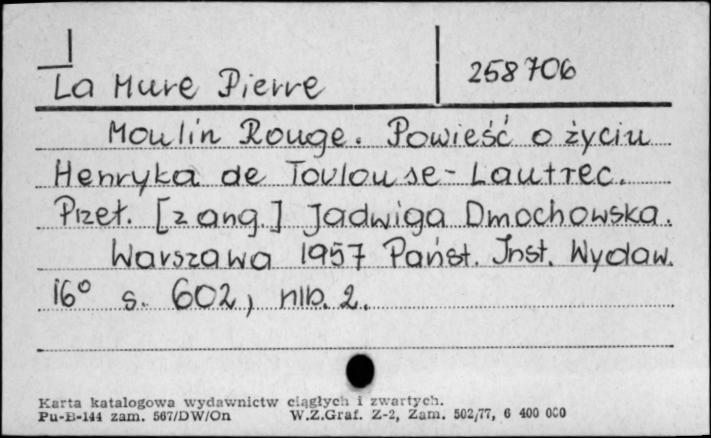 La Mure Pierre 258706
Moulin Rouge. Powieść o życiu
Henryka de Toulouse-Lautrec.
Przeł. [z ang.] Jadwiga Dmochowska.
Warszawa 1957 Państ. Inst. Wydaw.
16° s. 602, nlb. 2.
Karta katalogowa wydawnictw ciągłych i zwartych.
Pu-B-144 zam. 567/DW/On W.Z.Graf. Z-2, Zam. 502/77, 6 400 000